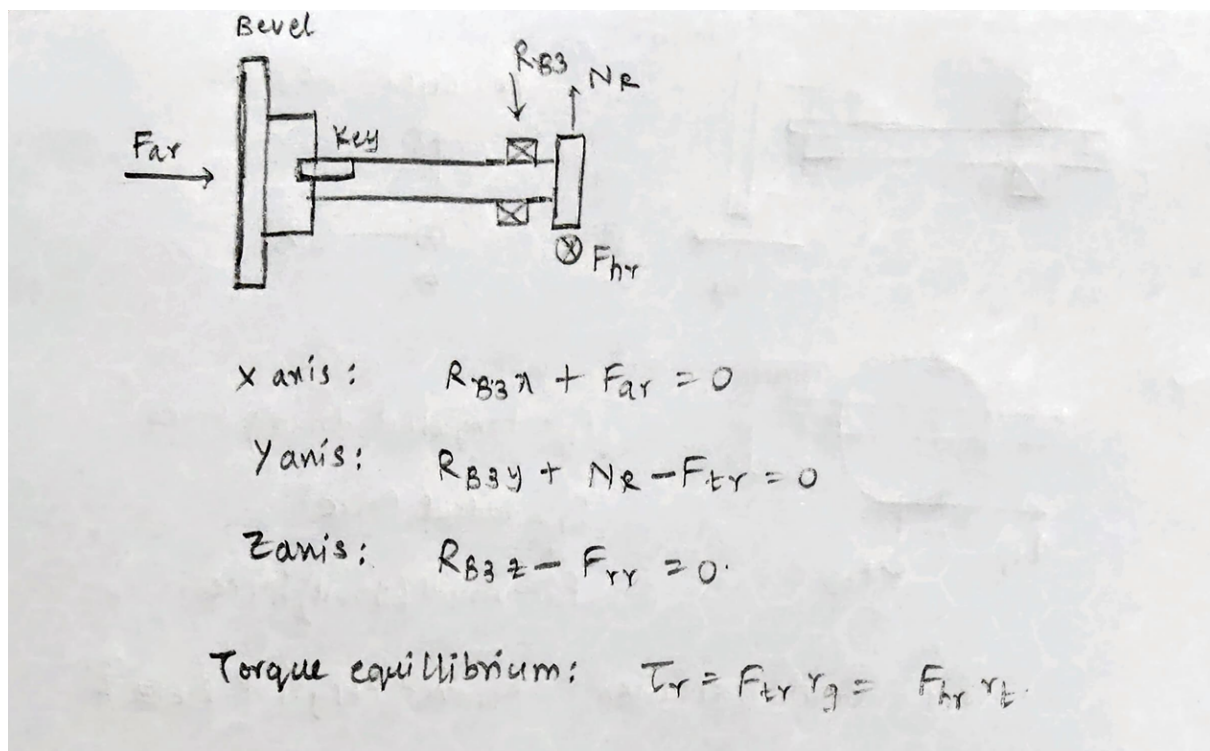 Bevel
RB3
NR
Far
Key
Fhr
x axis: RB3x + Far = 0
Y axis: RB3y + NR - Ftr = 0
Z axis: RB3z - Frr = 0.
Torque equillibrium: Tr = Ftr rg = Fhr rt.